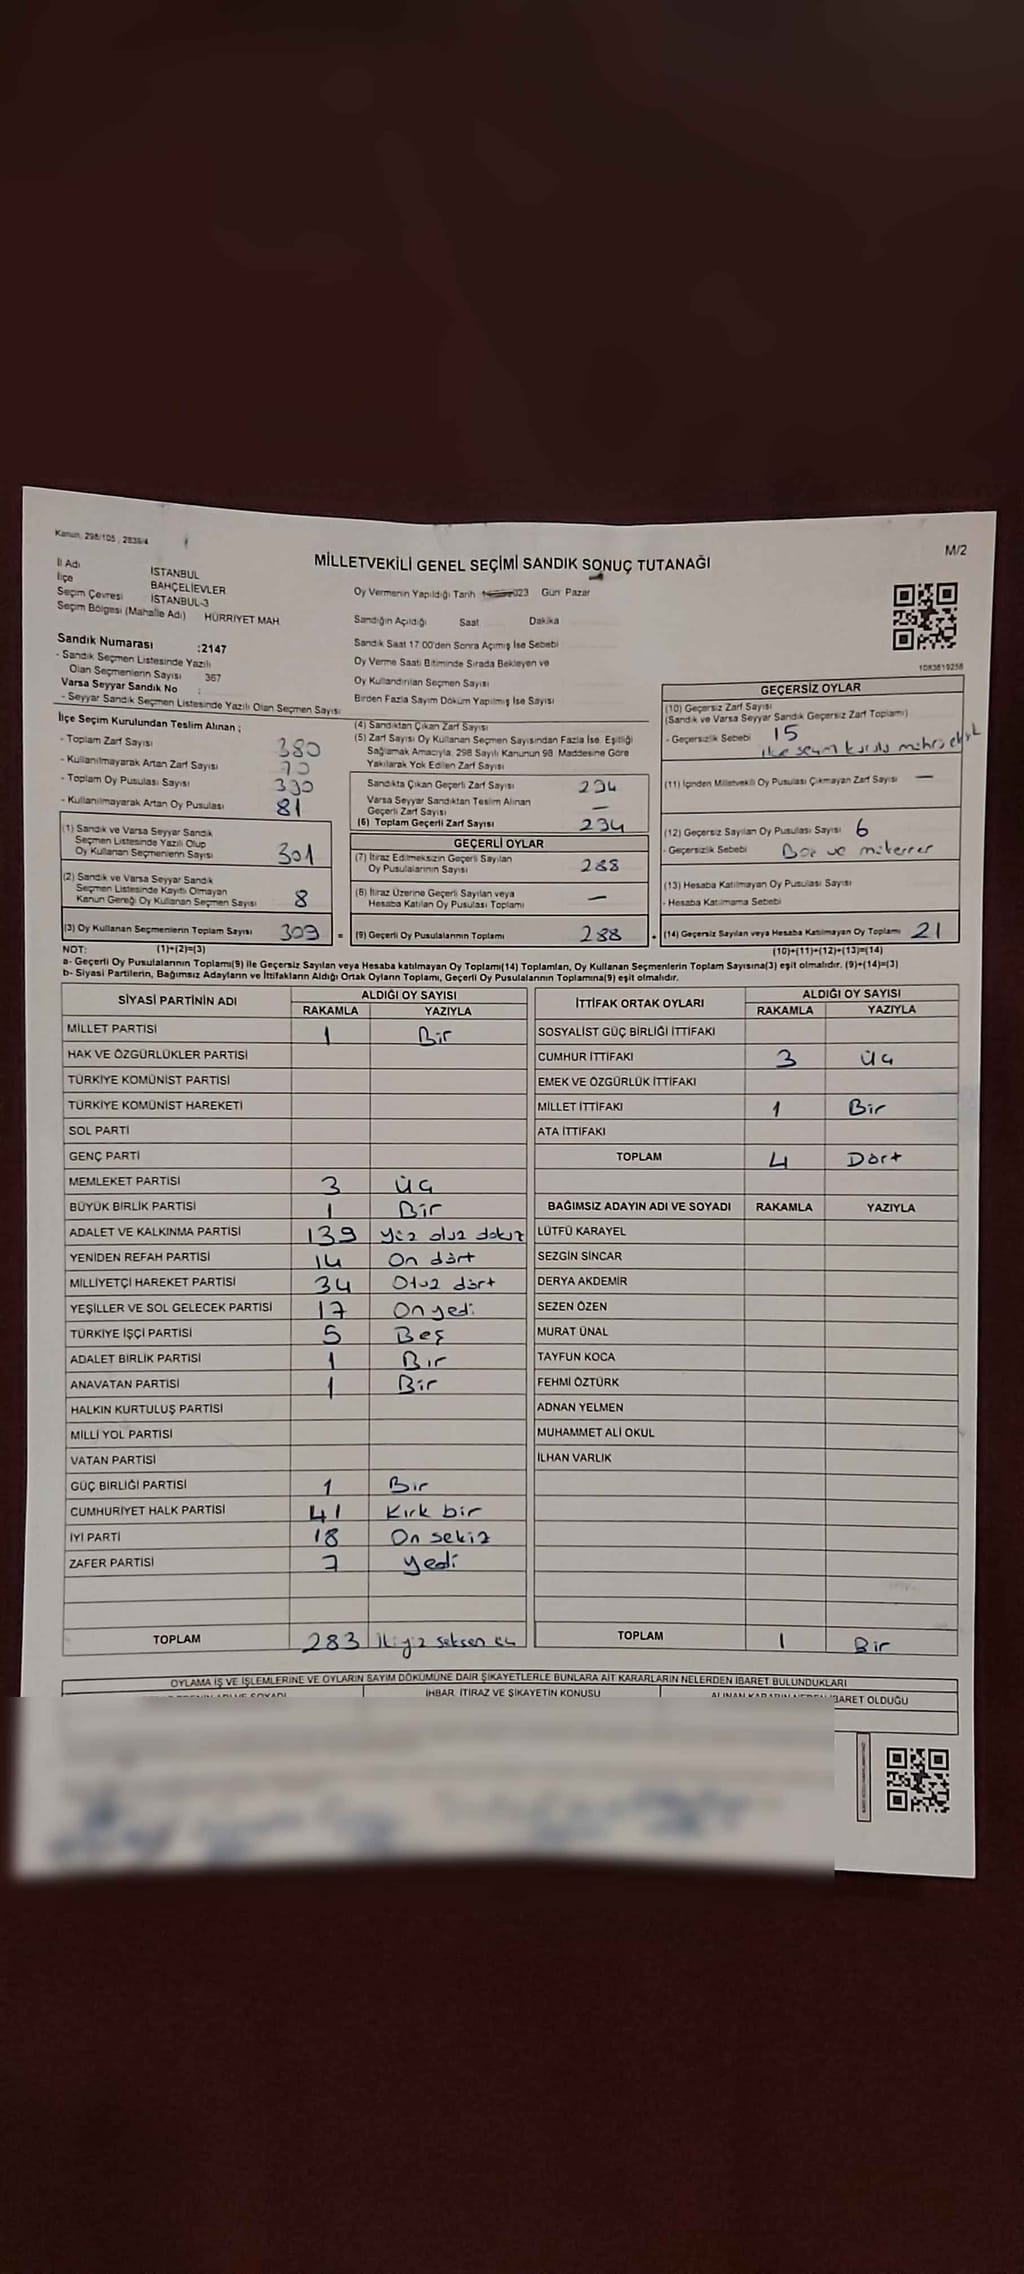 Kanun, 298/105, 2839/4
M/2
MİLLETVEKİLİ GENEL SEÇİMİ SANDIK SONUÇ TUTANAĞI
İl Adı İSTANBUL
İlçe BAHÇELİEVLER
Seçim Çevresi İSTANBUL-3
Seçim Bölgesi (Mahalle Adı) HÜRRİYET MAH.
Oy Vermenin Yapıldığı Tarih 023 Gün: Pazar
Sandığın Açıldığı Saat Dakika
Sandık Saat 17.00'den Sonra Açımış İse Sebebi
Oy Verme Saati Bitiminde Sırada Bekleyen ve
Oy Kullandırılan Seçmen Sayısı
Birden Fazla Sayım Döküm Yapılmış İse Sayısı
Sandık Numarası :2147
- Sandık Seçmen Listesinde Yazılı
Olan Seçmenlerin Sayısı 367
Varsa Seyyar Sandık No :
- Seyyar Sandık Seçmen Listesinde Yazılı Olan Seçmen Sayısı
1083619258
İlçe Seçim Kurulundan Teslim Alınan ;
- Toplam Zarf Sayısı 380
- Kullanılmayarak Artan Zarf Sayısı
- Toplam Oy Pusulası Sayısı 390
- Kullanılmayarak Artan Oy Pusulası 81
(1) Sandık ve Varsa Seyyar Sandık
Seçmen Listesinde Yazılı Olup
Oy Kullanan Seçmenlerin Sayısı 301
(2) Sandık ve Varsa Seyyar Sandık
Seçmen Listesinde Kayıtlı Olmayan
Kanun Gereği Oy Kullanan Seçmen Sayısı 8
(3) Oy Kullanan Seçmenlerin Toplam Sayısı 309 =
(4) Sandıktan Çıkan Zarf Sayısı
(5) Zarf Sayısı Oy Kullanan Seçmen Sayısından Fazla İse, Eşitliği
Sağlamak Amacıyla, 298 Sayılı Kanunun 98. Maddesine Göre
Yakılarak Yok Edilen Zarf Sayısı
Sandıkta Çıkan Geçerli Zarf Sayısı 294
Varsa Seyyar Sandıktan Teslim Alınan
Geçerli Zarf Sayısı —
(6) Toplam Geçerli Zarf Sayısı 294
GEÇERLİ OYLAR
(7) İtiraz Edilmeksizin Geçerli Sayılan
Oy Pusulalarının Sayısı 288
(8) İtiraz Üzerine Geçerli Sayılan veya
Hesaba Katılan Oy Pusulası Toplamı —
(9) Geçerli Oy Pusulalarının Toplamı 288 +
GEÇERSİZ OYLAR
(10) Geçersiz Zarf Sayısı
(Sandık ve Varsa Seyyar Sandık Geçersiz Zarf Toplamı) 15
- Geçersizlik Sebebi ilçe seçim kurulu mührü eksik
(11) İçinden Milletvekili Oy Pusulası Çıkmayan Zarf Sayısı —
(12) Geçersiz Sayılan Oy Pusulası Sayısı 6
- Geçersizlik Sebebi Boş ve mükerrer
(13) Hesaba Katılmayan Oy Pusulası Sayısı
- Hesaba Katılmama Sebebi
(14) Geçersiz Sayılan veya Hesaba Katılmayan Oy Toplamı 21
NOT: (1)+(2)=(3)
(10)+(11)+(12)+(13)=(14)
a- Geçerli Oy Pusulalarının Toplamı(9) ile Geçersiz Sayılan veya Hesaba katılmayan Oy Toplamı(14) Toplamları, Oy Kullanan Seçmenlerin Toplam Sayısına(3) eşit olmalıdır. (9)+(14)=(3)
b- Siyasi Partilerin, Bağımsız Adayların ve İttifakların Aldığı Ortak Oyların Toplamı, Geçerli Oy Pusulalarının Toplamına(9) eşit olmalıdır.
SİYASİ PARTİNİN ADI
ALDIĞI OY SAYISI
RAKAMLA YAZIYLA
MİLLET PARTİSİ 1 Bir
HAK VE ÖZGÜRLÜKLER PARTİSİ
TÜRKİYE KOMÜNİST PARTİSİ
TÜRKİYE KOMÜNİST HAREKETİ
SOL PARTİ
GENÇ PARTİ
MEMLEKET PARTİSİ 3 Üç
BÜYÜK BİRLİK PARTİSİ 1 Bir
ADALET VE KALKINMA PARTİSİ 139 Yüz otuz dokuz
YENİDEN REFAH PARTİSİ 14 On dört
MİLLİYETÇİ HAREKET PARTİSİ 34 Otuz dört
YEŞİLLER VE SOL GELECEK PARTİSİ 17 On yedi
TÜRKİYE İŞÇİ PARTİSİ 5 Beş
ADALET BİRLİK PARTİSİ 1 Bir
ANAVATAN PARTİSİ 1 Bir
HALKIN KURTULUŞ PARTİSİ
MİLLİ YOL PARTİSİ
VATAN PARTİSİ
GÜÇ BİRLİĞİ PARTİSİ 1 Bir
CUMHURİYET HALK PARTİSİ 41 Kırk bir
İYİ PARTİ 18 On sekiz
ZAFER PARTİSİ 7 Yedi
TOPLAM 283 İkiyüz seksen üç
İTTİFAK ORTAK OYLARI
ALDIĞI OY SAYISI
RAKAMLA YAZIYLA
SOSYALİST GÜÇ BİRLİĞİ İTTİFAKI
CUMHUR İTTİFAKI 3 Üç
EMEK VE ÖZGÜRLÜK İTTİFAKI
MİLLET İTTİFAKI 1 Bir
ATA İTTİFAKI
TOPLAM 4 Dört
BAĞIMSIZ ADAYIN ADI VE SOYADI RAKAMLA YAZIYLA
LÜTFÜ KARAYEL
SEZGİN SİNCAR
DERYA AKDEMİR
SEZEN ÖZEN
MURAT ÜNAL
TAYFUN KOCA
FEHMİ ÖZTÜRK
ADNAN YELMEN
MUHAMMET ALİ OKUL
İLHAN VARLIK
TOPLAM 1 Bir
OYLAMA İŞ VE İŞLEMLERİNE VE OYLARIN SAYIM DÖKÜMÜNE DAİR ŞİKAYETLERLE BUNLARA AİT KARARLARIN NELERDEN İBARET BULUNDUKLARI
İHBAR, İTİRAZ VE ŞİKAYETİN KONUSU
ALINAN KARARIN NEDEN İBARET OLDUĞU